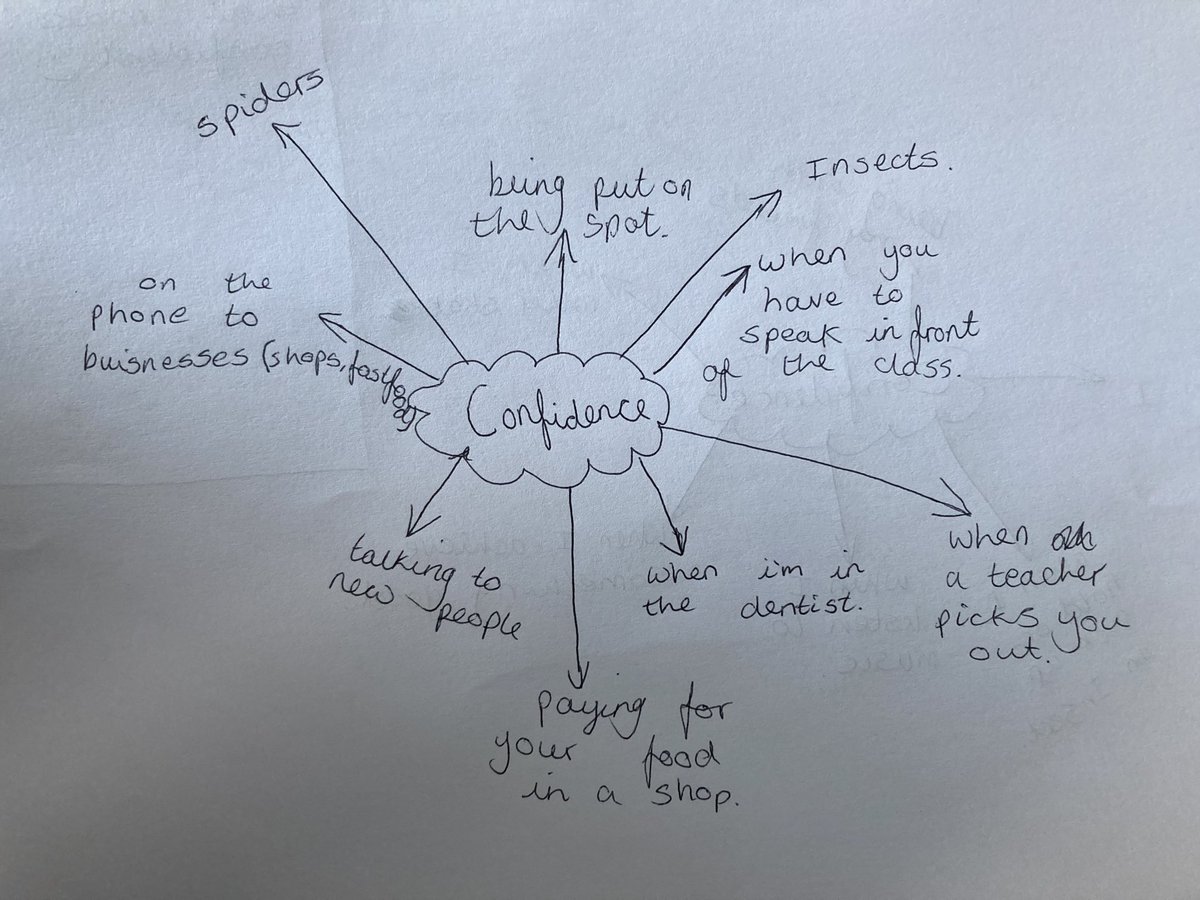 spiders
being put on
the spot.
Insects.
when you
have to
speak in front
of the class.
on the
phone to
buisnesses (shops, fastfood)
Confidence
when
a teacher
picks you
out.
talking to
new people
when i'm in
the dentist.
paying for
your food
in a shop.